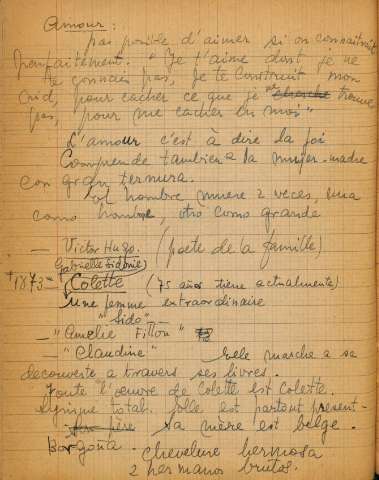 Amour :
pas posible d'aimer si on connaitrait
parfaitement. "Je t'aime dont je ne
te connais pas, Je te construit mon
nid, pour cacher ce que je ne cherche trouve
pas, pour me cacher en moi"
L'amour c'est à dire la foi
Comprende tambien a la mujer-madre
con gran ternura.
el hombre muere 2 veces, una
como hombre, otro como grande
— Victor Hugo. (poete de la famille)
Gabrielle Sidonie
+1873 = Colette (75 años tiene actualmente)
Une femme extraordinaire
"Sido"
— "Amelie"
— "Claudine" Elle marche a se
découverte a travers ses livres.
Toute l'œuvre de Colette est Colette.
Lyrique total. Colle est partout present-
père sa mère est belge.
Borgoña. Chevelure hermosa
2 hermanos brutos.